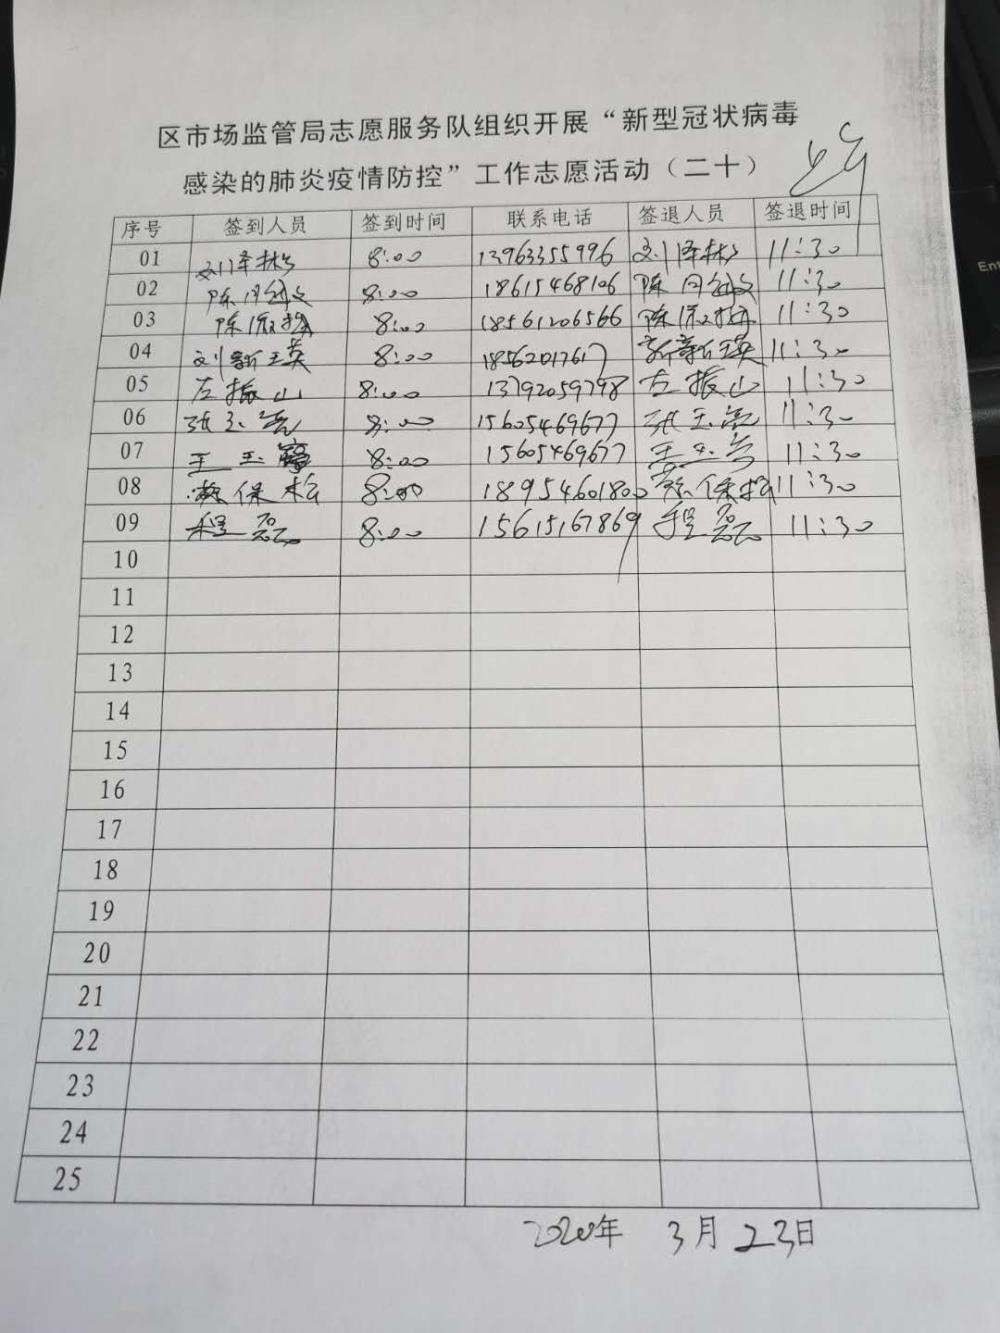 区市场监管局志愿服务队组织开展“新型冠状病毒
感染的肺炎疫情防控”工作志愿活动（二十）
序号 签到人员 签到时间 联系电话 签退人员 签退时间
01 刘泽林 8:00 13963355996 刘泽林 11:30
02 陈 8:00 18615468106 陈 11:30
03 陈 8:00 18561206566 陈 11:30
04 刘新英 8:00 18562017617 11:30
05 左振山 8:00 13792059798 左振山 11:30
06 张玉亮 8:00 15605469677 张玉亮 11:30
07 王玉 8:00 15605469677 王玉 11:30
08 保松 8:00 18954601800 保松 11:30
09 程磊 8:00 15615167869 程磊 11:30
10
11
12
13
14
15
16
17
18
19
20
21
22
23
24
25
2020年 3月23日